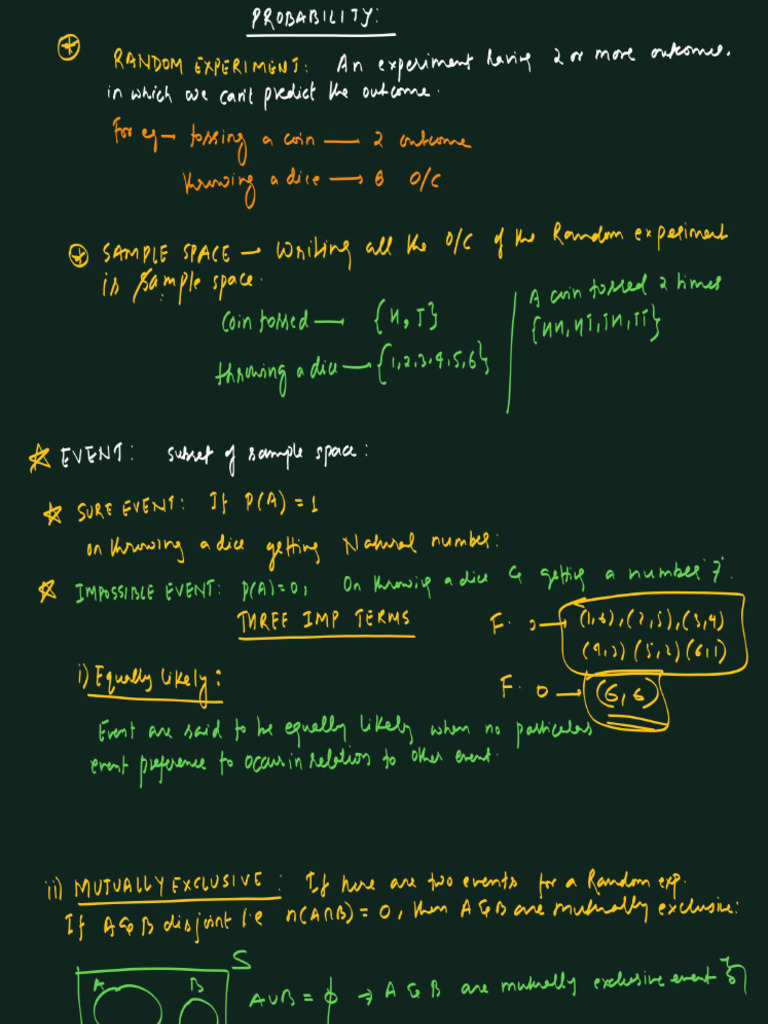 PROBABILITY:
RANDOM EXPERIMENT: An experiment having 2 or more outcomes.
in which we can't predict the outcome.
For eg — tossing a coin — 2 outcome
throwing a dice → 6 O/C
SAMPLE SPACE — Writing all the O/C of the Random experiment
is sample space.
Coin tossed — {H, T}
throwing a dice — {1,2,3,4,5,6}
A coin tossed 2 times
{HH, HT, TH, TT}
EVENT: subset of sample space:
SURE EVENT: If P(A) = 1
on throwing a dice getting Natural number:
IMPOSSIBLE EVENT: P(A)=0, On throwing a dice & getting a number '7'.
THREE IMP TERMS
F. → (1,6), (2,5), (3,4)
(4,3) (5,2) (6,1)
i) Equally likely:
F. 0 → (6,6)
Event are said to be equally likely when no particular
event preference to occur in relation to other event.
ii) MUTUALLY EXCLUSIVE: If here are two events for a Random exp.
If A & B disjoint i.e n(A∩B) = 0, then A & B are mutually exclusive:
S
A B
AUB = ϕ → A & B are mutually exclusive event